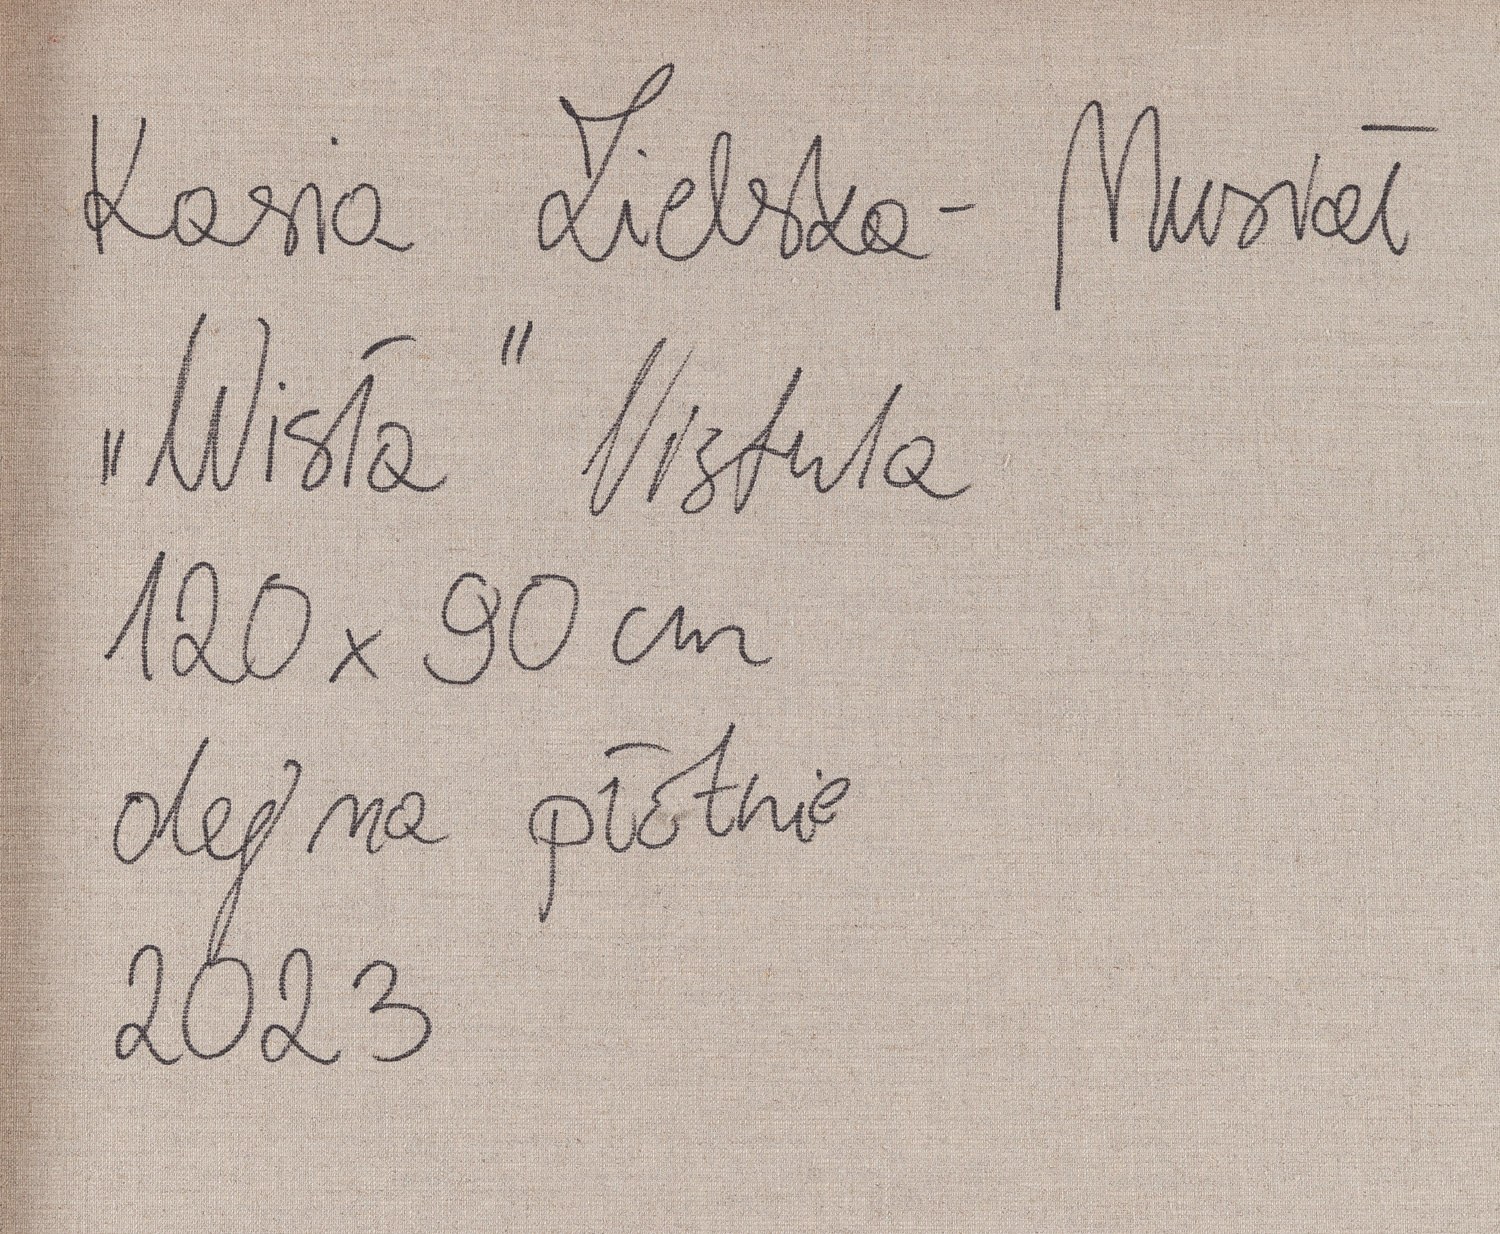 Kasia Zielska- Muskat
„Wisła" Vistula
120 x 90 cm
olej na płótnie
2023